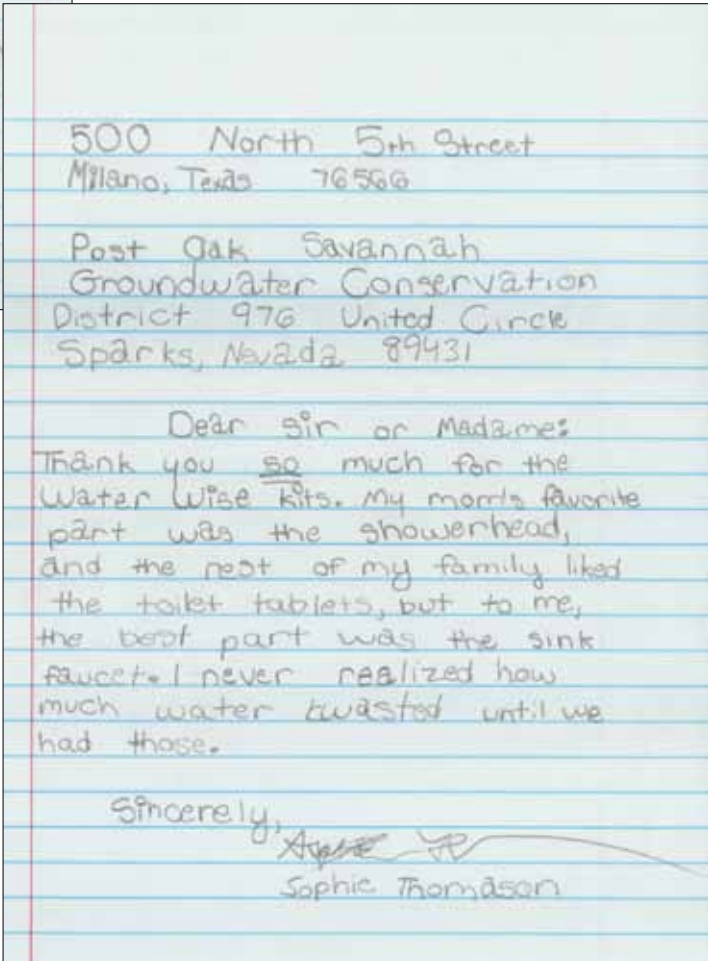 500 North 5th Street
Milano, Texas 76566
Post Oak Savannah
Groundwater Conservation
District 976 United Circle
Sparks, Nevada 89431
Dear Sir or Madame:
Thank you so much for the
Water Wise Kits. My mom's favorite
part was the showerhead,
and the rest of my family liked
the toilet tablets, but to me,
the best part was the sink
faucet. I never realized how
much water I wasted until we
had those.
Sincerely,
Sophie Thomason